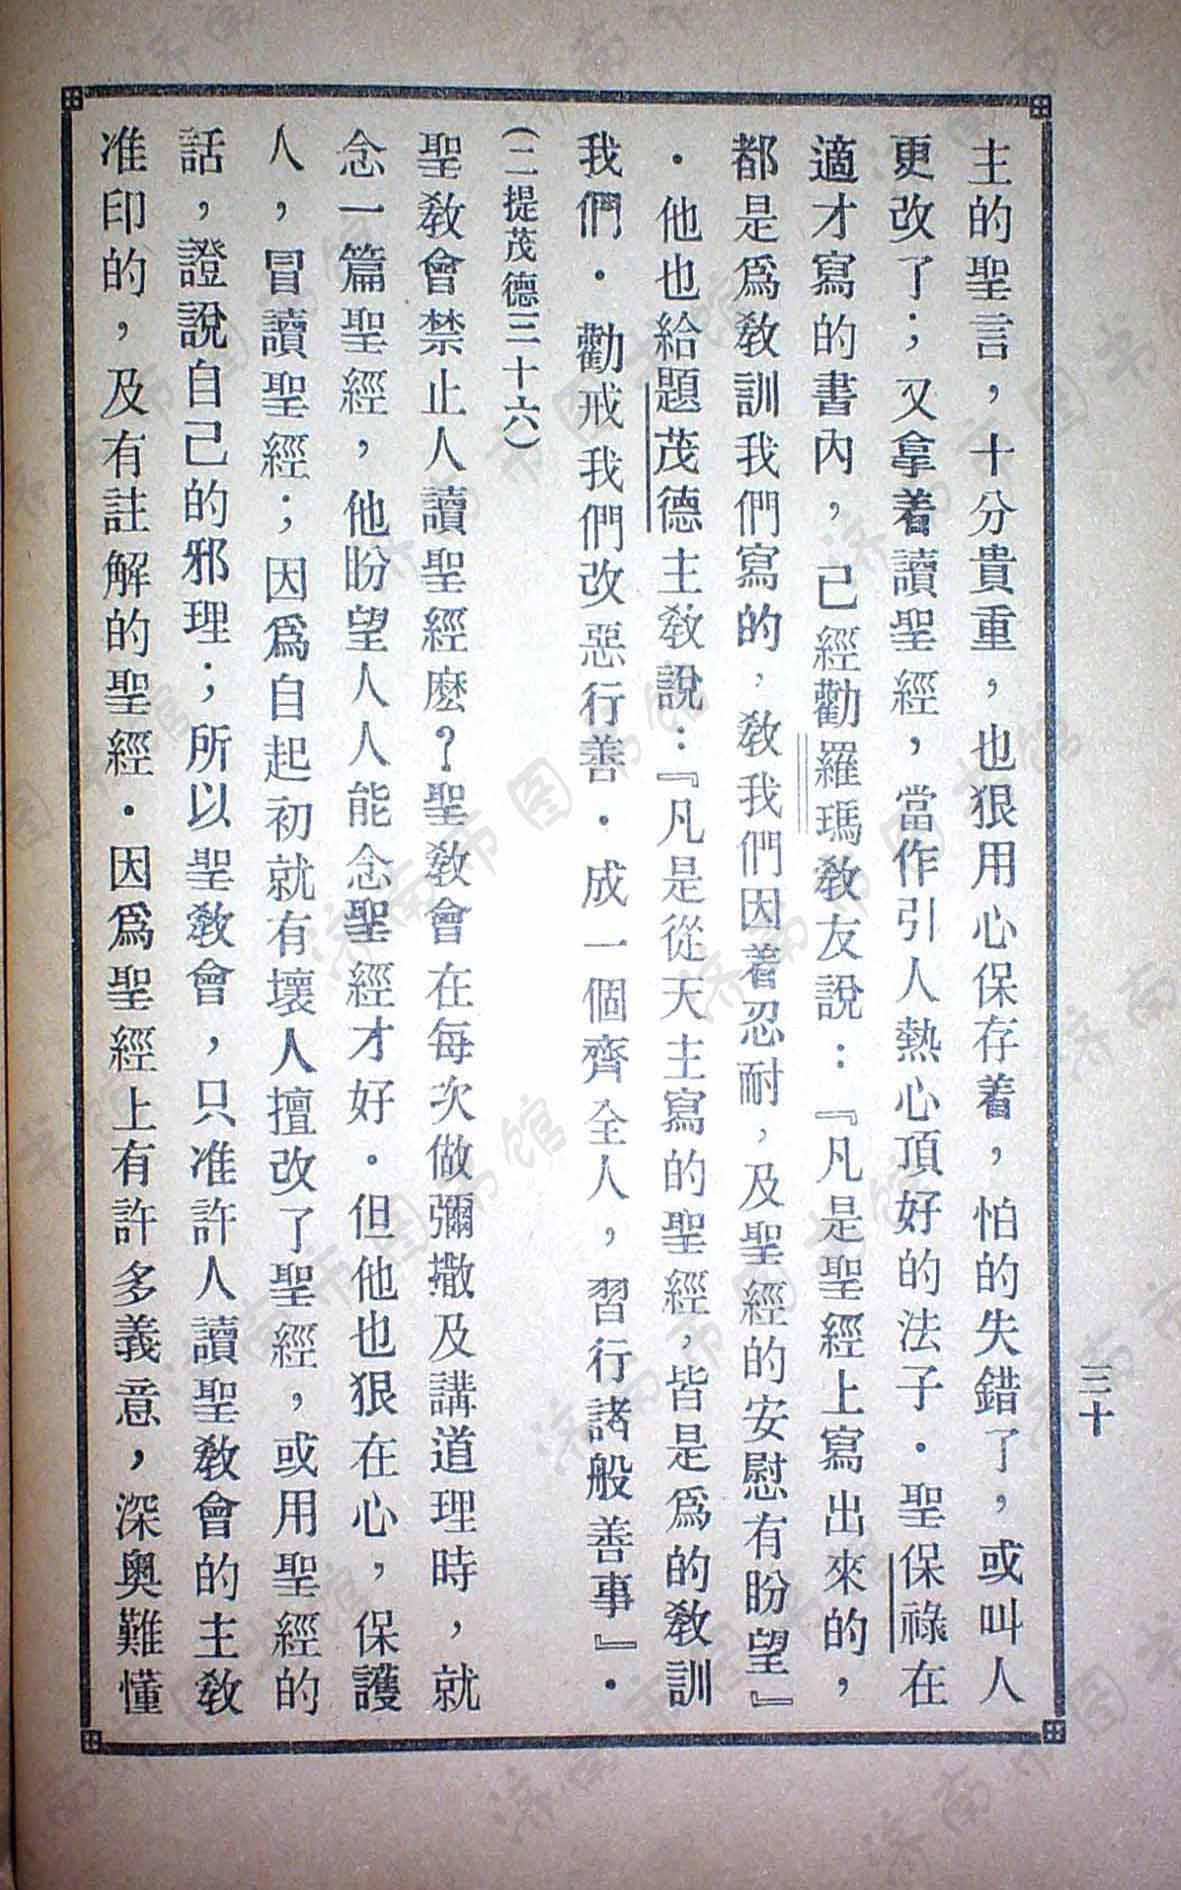 主的聖言，十分貴重，也狠用心保存着，怕的失錯了，或叫人
更改了；又拿着讀聖經，當作引人熱心頂好的法子．聖保祿在
適才寫的書內，己經勸羅瑪教友說：『凡是聖經上寫出來的，
都是爲教訓我們寫的，教我們因着忍耐，及聖經的安慰有盼望』
．他也給題茂德主教說：『凡是從天主寫的聖經，皆是爲的教訓
我們．勸戒我們改惡行善．成一個齊全人，習行諸般善事』．
（二提茂德三十六）
聖教會禁止人讀聖經麽？聖教會在每次做彌撒及講道理時，就
念一篇聖經，他盼望人人能念聖經才好．但他也狠在心，保護
人，冒讀聖經；因爲自起初就有壞人擅改了聖經，或用聖經的
話，證說自己的邪理；所以聖教會，只准許人讀聖教會的主教
准印的，及有註解的聖經．因爲聖經上有許多義意，深奧難懂
三十
济南市图书馆